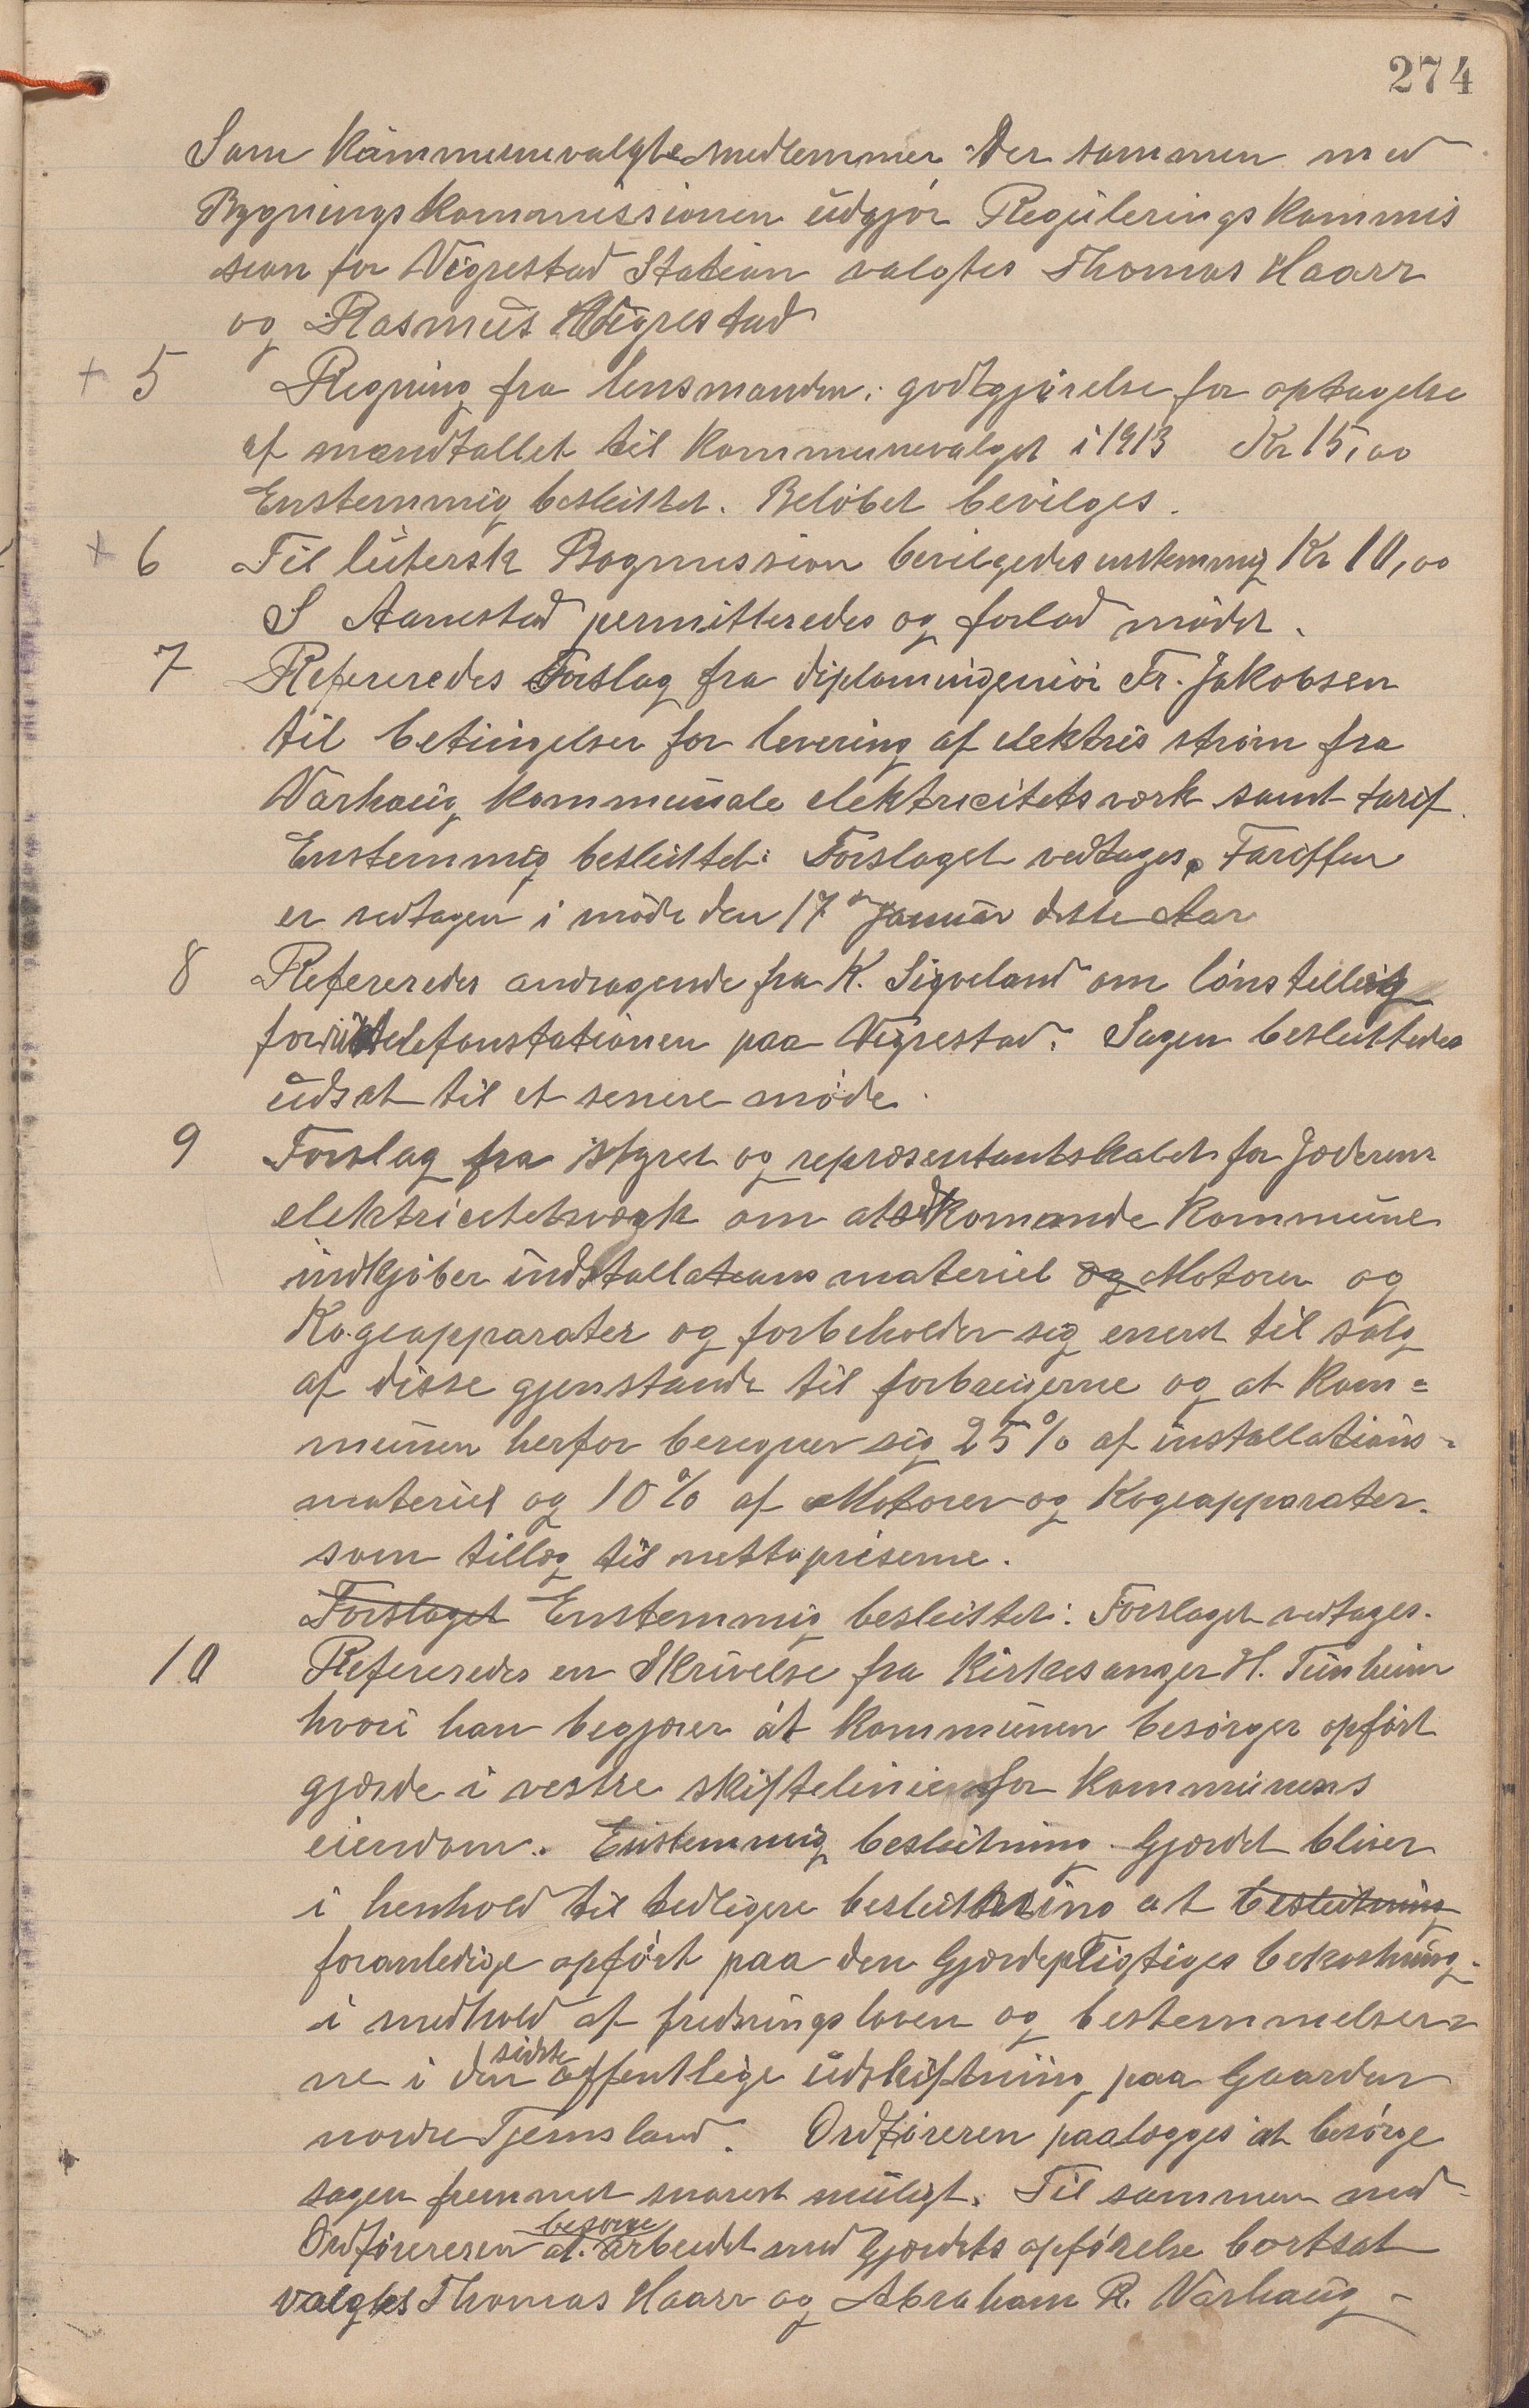 274
Som kommunevalgte medlemmer der sammen med
Bygningskommissionen udgjør Reguleringskommis
sion for Vigrestad Station valgtes Thomas Haarr
og Rasmus Vigrestad
+ 5 Regning fra lensmanden: godtgjørelse for optagelse
af mandtallet til kommunevalget i 1913 Kr 15,00
Enstemmig besluttet. Beløbet bevilges.
+ 6 Til lutersk Bogmission bevilgedes enstemmig Kr 10,00
S Aanestad permitteredes og forlod mødet.
7 Refereredes Forslag fra diplomingeniør Fr. Jakobsen
til betingelser for levering af elektris strøm fra
Varhaug kommunale elektricitetsværk samt tarif.
Enstemmig besluttet: Forslaget vedtages. Tariffen
er vedtagen i møde den 17de Januar dette Aar
8 Refereredes andragende fra K. Sigveland om lønstillæg
for telefonstationen paa Vigrestad. Sagen besluttedes
udsat til et senere møde.
9 Forslag fra styret og repræsentantskabet for Jæderens
elektricitetsværk om at vedkomande kommune
indkjøber indstallations materiel og Motorer og
Kogeapparater og forbeholder sig eneret til salg
af disse gjenstande til forbrugerne og at kom=
munen herfor beregner sig 25% af installations=
materiel og 10% af Motorer og Kogeapparater.
som tillæg til nettopriserne.
Forslaget Enstemmig besluttet: Forslaget vedtages.
10 Refereredes en Skrivelse fra Kirkesanger H. Tunheim
hvori han begjærer at kommunen besørger opført
gjærde i vestre skiftelinie for kommunens
eiendom. Enstemmig beslutning. Gjærdet bliver
i henhold til tidligere beslutning at beslutning
foranledige opført paa den Gjærdepligtiges bekostning.
i medhold af fredningsloven og bestemmelser=
ne i den sidste offentlige udskiftning paa Gaarden
nordre Tjemsland. Ordføreren paalægges at besørge
sagen fremmet snarest muligt. Til sammen med
Ordføreren at besørge arbeidet med Gjærdets opførelse bortsat
valgtes Thomas Haarr og Abraham R. Varhaug –